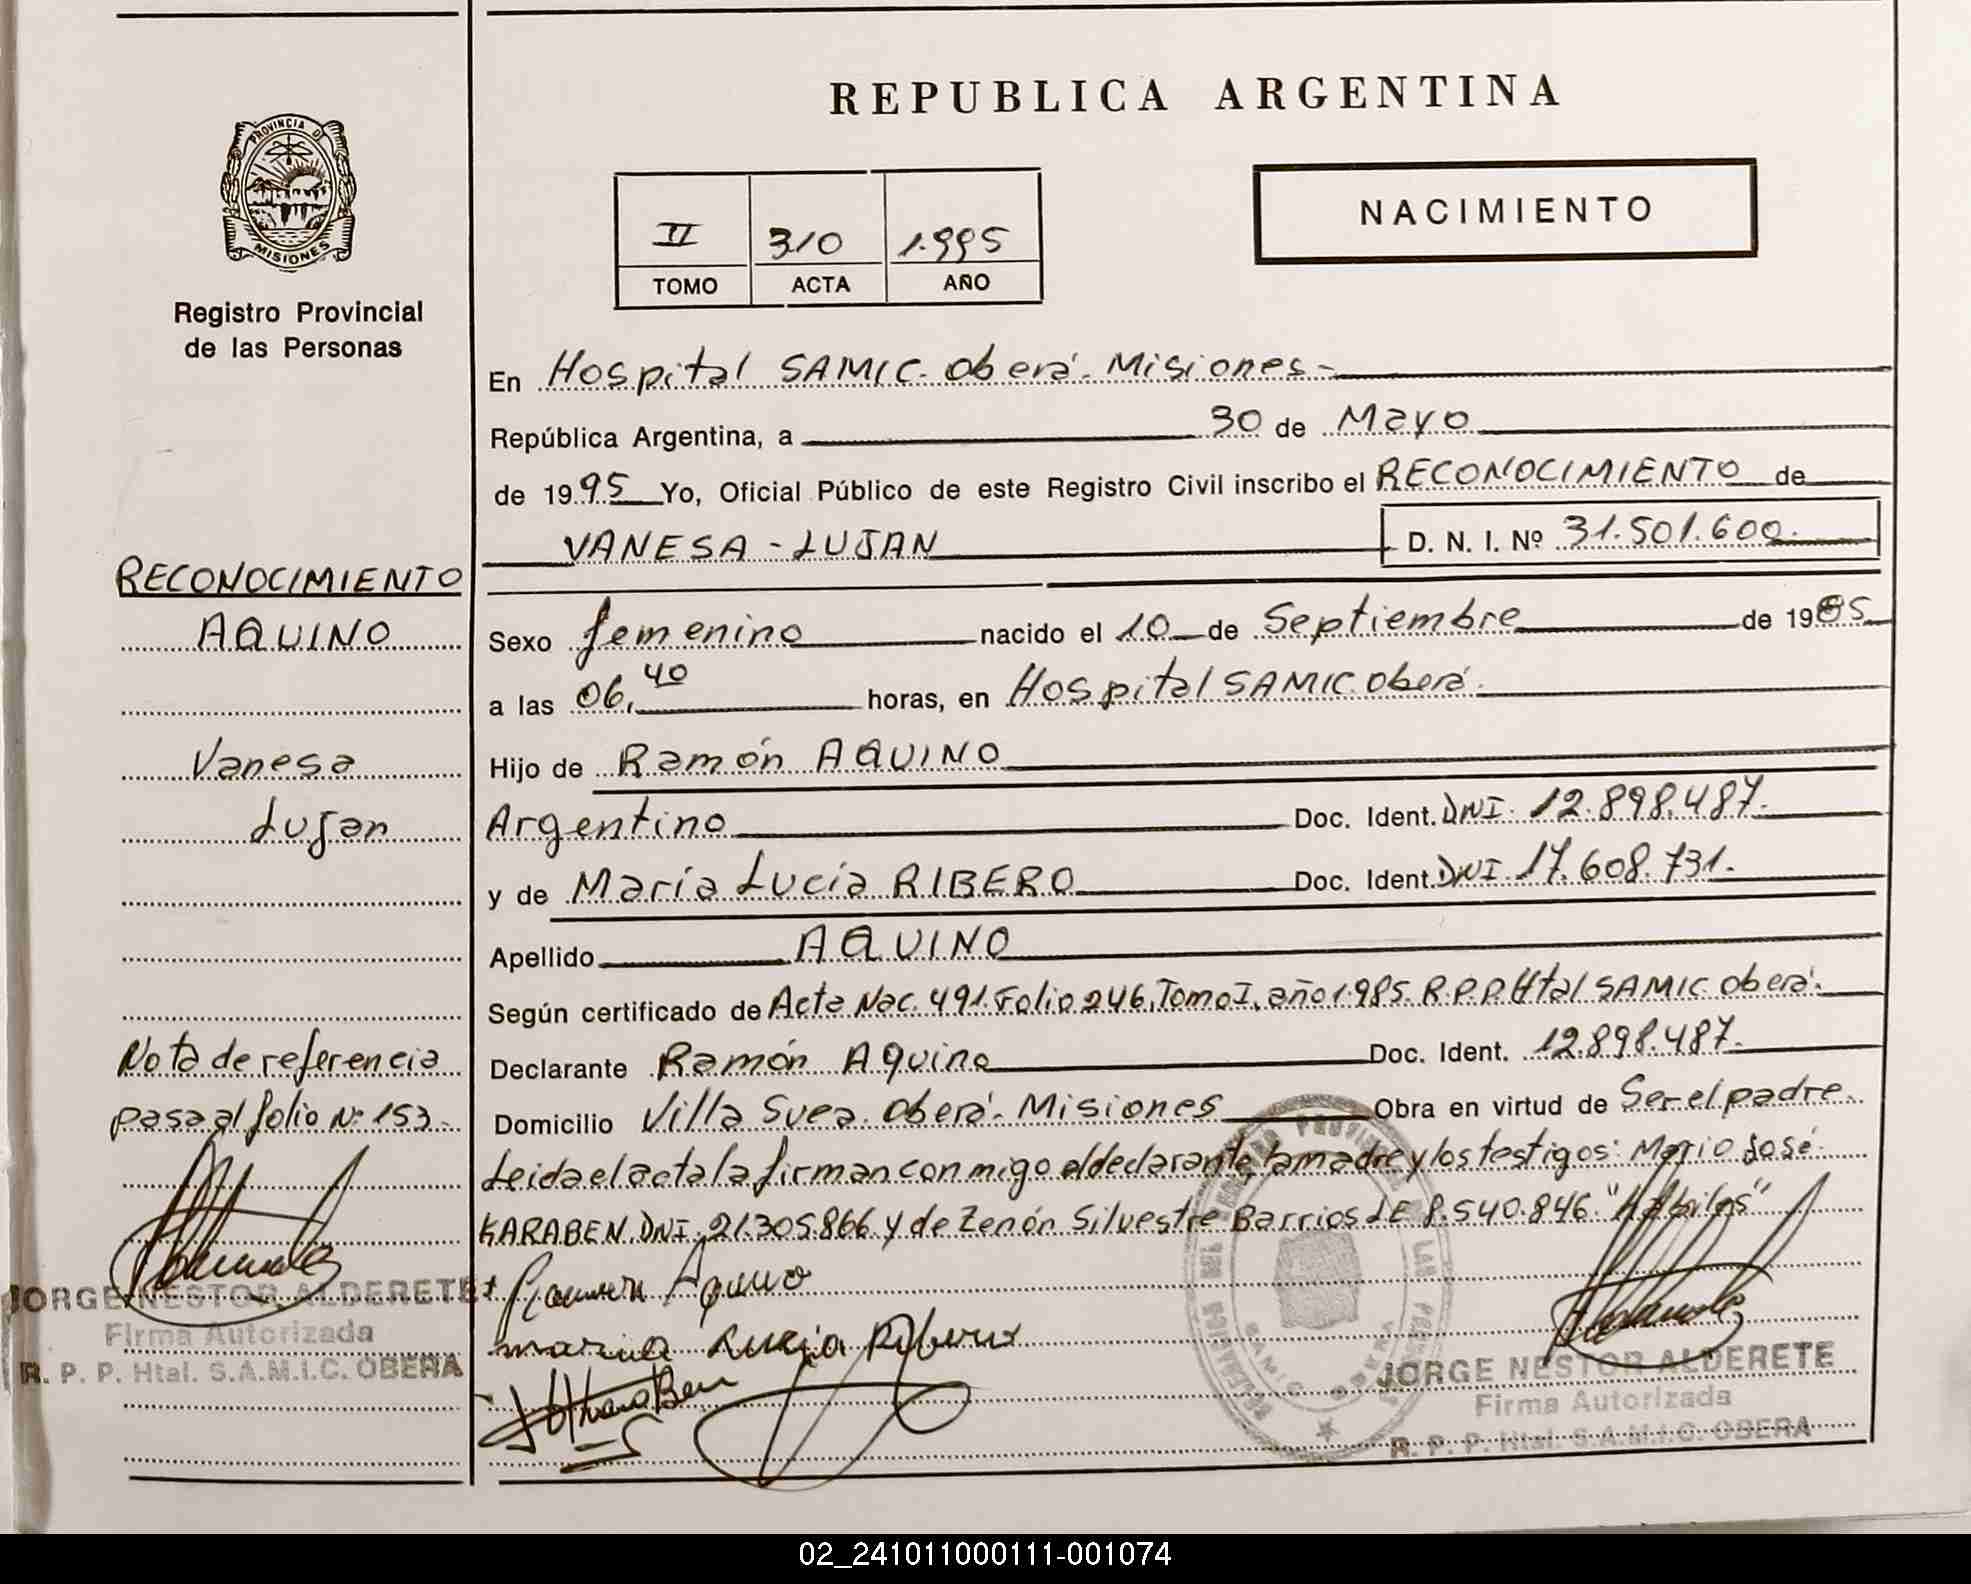 REPUBLICA ARGENTINA
PROVINCIA D
MISIONES
Registro Provincial
de las Personas
II 310 1.995
TOMO ACTA AÑO
NACIMIENTO
En Hospital SAMIC. Oberá. Misiones-
República Argentina, a 30 de Mayo
de 1995 Yo, Oficial Público de este Registro Civil inscribo el RECONOCIMIENTO de
VANESA - LUJAN D. N. I. Nº 31.501.600.
Sexo femenino nacido el 10 de Septiembre de 1985
a las 06,40 horas, en Hospital SAMIC. Oberá.
Hijo de Ramón AQUINO
Argentino Doc. Ident. DNI. 12.898.487.
y de María Lucía RIBERO Doc. Ident. DNI 17.608.731.
Apellido AQUINO
Según certificado de Acta Nac. 491. Folio 246, Tomo I, año 1.985. R.P.P. Htal SAMIC Oberá.
Declarante Ramón Aquino Doc. Ident. 12.898.487.
Domicilio Villa Svea. Oberá. Misiones Obra en virtud de Ser el padre.
Leida el acta la firman con migo el declarante, la madre y los testigos: Mario José
KARABEN. DNI. 21.305.866. y de Zenón Silvestre Barrios LE 8.540.846. "Hábiles"
Ramon Aquino
maria Lucia Ribero
JORGE NESTOR ALDERETE
Firma Autorizada
R. P. P. Htal. S.A.M.I.C. OBERA
RECONOCIMIENTO
AQUINO
Vanesa
Lujan
Nota de referencia
pasa al folio Nº 153.
JORGE NESTOR ALDERETE
Firma Autorizada
R. P. P. Htal. S.A.M.I.C. OBERA
02_241011000111-001074